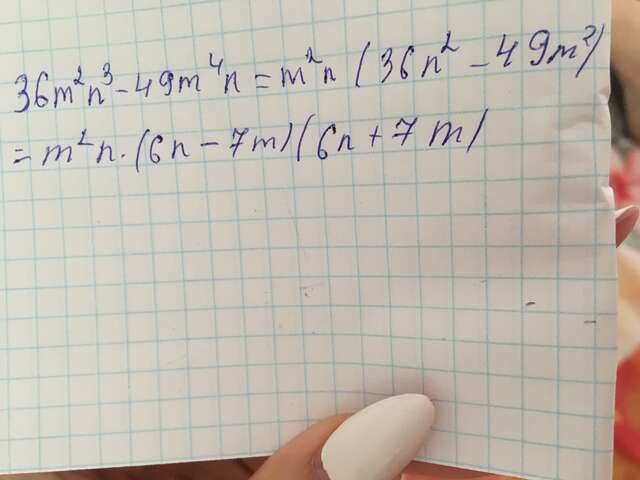 36m²n³-49m⁴n=m²n(36n²-49m²)
=m²n·(6n-7m)(6n+7m)